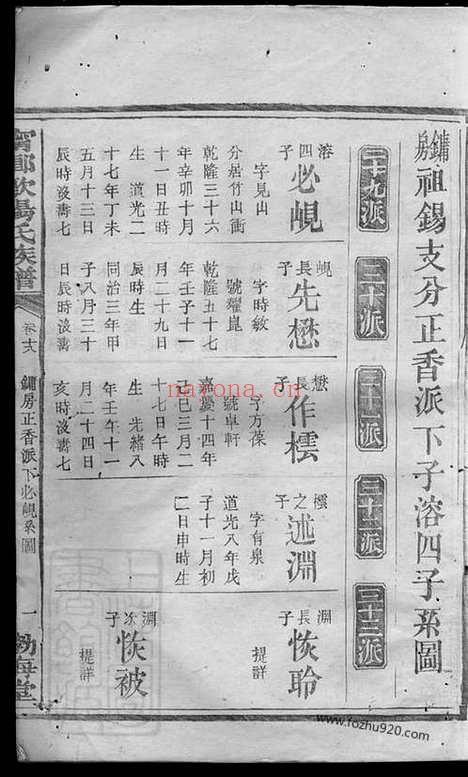 鏞房祖錫支分正香派下子溶四子系圖
二十九派
三十派
三十一派
三十二派
三十三派
溶四子
必峴
字見山
分居竹山衝
乾隆三十六
年辛卯十月
十一日丑時
生 道光二
十七年丁未
五月十三日
辰時沒壽七
峴長子
先懋
字時敏
號耀崑
乾隆五十七
年壬子十一
月二十九日
辰時生
同治三年甲
子八月三十
日辰時沒壽七
懋長子
作橒
字方葆
號卓軒
嘉慶十四年
己巳三月二
十七日午時
生 光緒八
年壬午十一
月二十四日
亥時沒壽七
橒之子
述淵
字有泉
道光八年戊
子十一月初
二日申時生
淵長子
恢聆
提詳
淵次子
恢被
提詳
甯鄉歐陽氏族譜
卷廿六
鏞房正香派下必峴系圖
一
勃海堂
nayona.cn
www.fozhu920.com